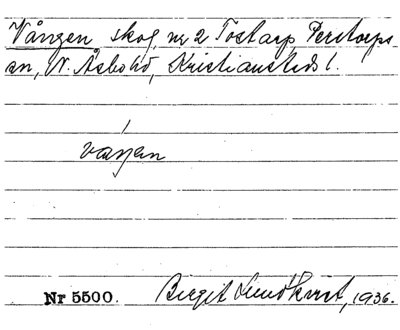 Vången skog, nr 2 Tostarp Perstorps
sn, N. Åsbo hd, Kristianstads l.
våŋen
Nr 5500. Birgit Lundkvist, 1936.